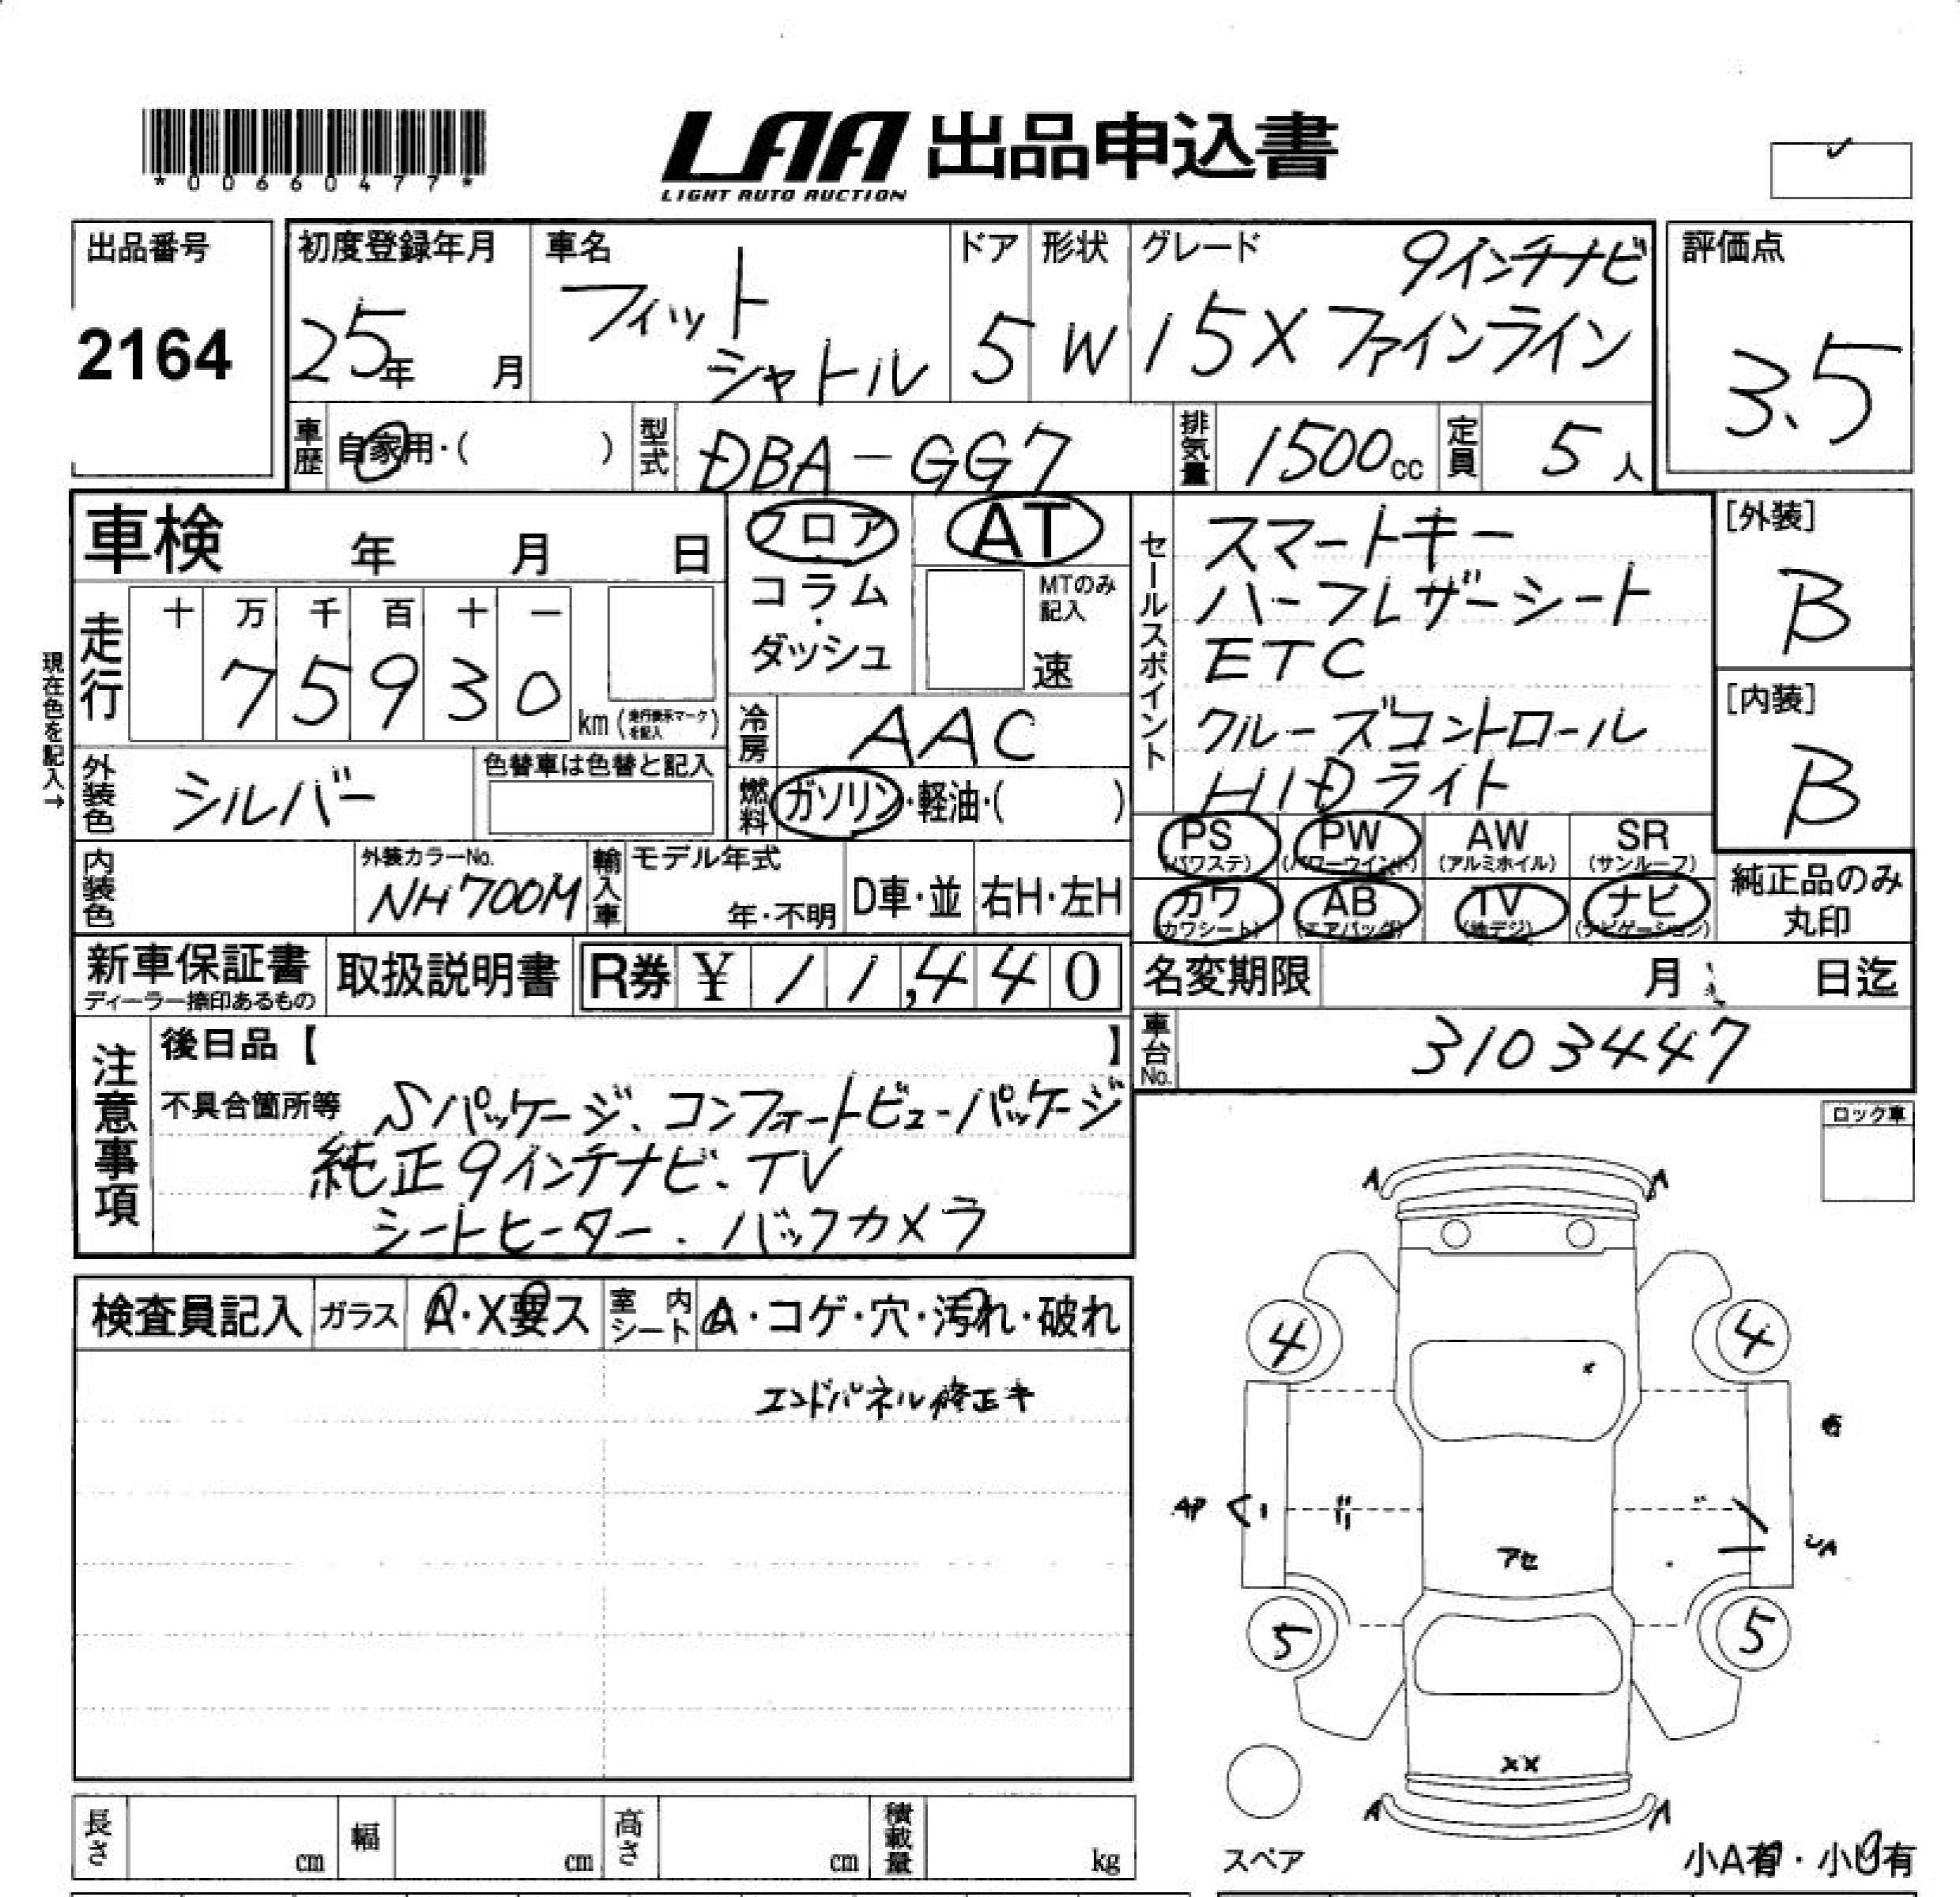 *00660477*
LAA 出品申込書
LIGHT AUTO AUCTION
出品番号
2164
初度登録年月
25年 月
車名
フィット
シャトル
ドア
5
形状
W
グレード
9インチナビ
15Xファインライン
評価点
3.5
車歴
自家用・( )
型式
DBA-GG7
排気量
1500cc
定員
5人
車検 年 月 日
フロア・コラム・ダッシュ
AT
MTのみ記入
速
セールスポイント
スマートキー
ハーフレザーシート
ETC
クルーズコントロール
HIDライト
[外装]
B
[内装]
B
現在色を記入→
走行
十 万 千 百 十 一
7 5 9 3 0
km (走行表示マークを記入)
冷房
AAC
外装色
シルバー
色替車は色替と記入
燃料
ガソリン・軽油・( )
PS (パワステ)
PW (パワーウインド)
AW (アルミホイル)
SR (サンルーフ)
カワ (カワシート)
AB (エアバッグ)
TV (地デジ)
ナビ (ナビゲーション)
純正品のみ
丸印
内装色
外装カラーNo.
NH700M
輸入車
モデル年式
年・不明
D車・並
右H・左H
新車保証書
ディーラー捺印あるもの
取扱説明書
R券 ¥ 11,440
名変期限 月 日迄
車台No.
3103447
注意事項
後日品【 】
不具合箇所等 Sパッケージ、コンフォートビューパッケージ
純正9インチナビ、TV
シートヒーター、バックカメラ
ロック車
検査員記入
ガラス
A・X要ス
室内シート
A・コゲ・穴・汚れ・破れ
エンドパネル修正キ
A A
4 4
アセ
UA
5 5
XX
A A
スペア
小A有・小U有
長さ cm
幅 cm
高さ cm
積載量 kg